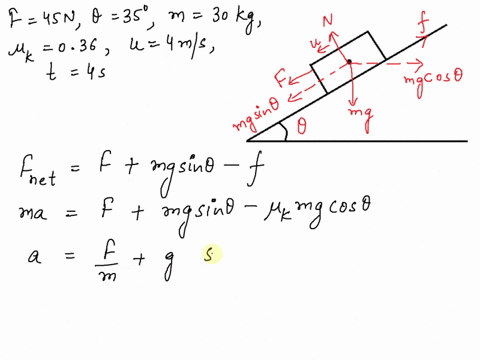 F = 45N, θ = 35°, m = 30 kg,
μk = 0.36, u = 4 m/s,
t = 4s
N
f
u
F
mg sinθ
mg cosθ
mg
θ
Fnet = F + mg sinθ - f
ma = F + mg sinθ - μk mg cosθ
a = F/m + g s